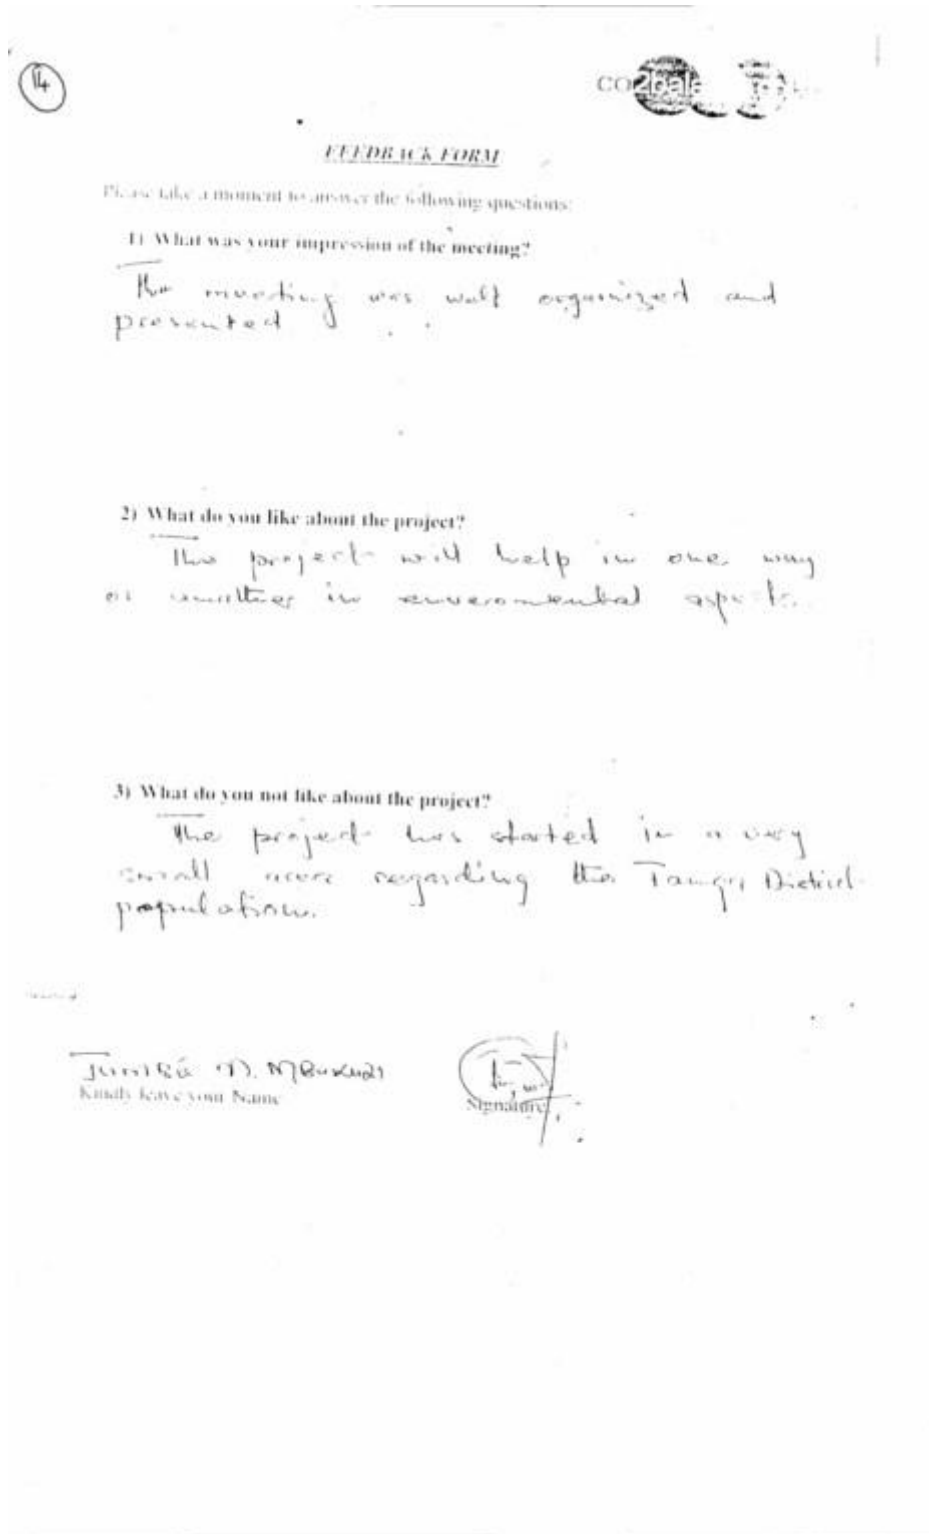 14
CO2bala
FEEDBACK FORM
Please take a moment to answer the following questions:
1) What was your impression of the meeting?
The meeting was well organized and
presented
2) What do you like about the project?
The project will help in one way
or another in enveromental
3) What do you not like about the project?
The project has started in a very
small regarding the District
population.
Kindly leave your Name
Signature